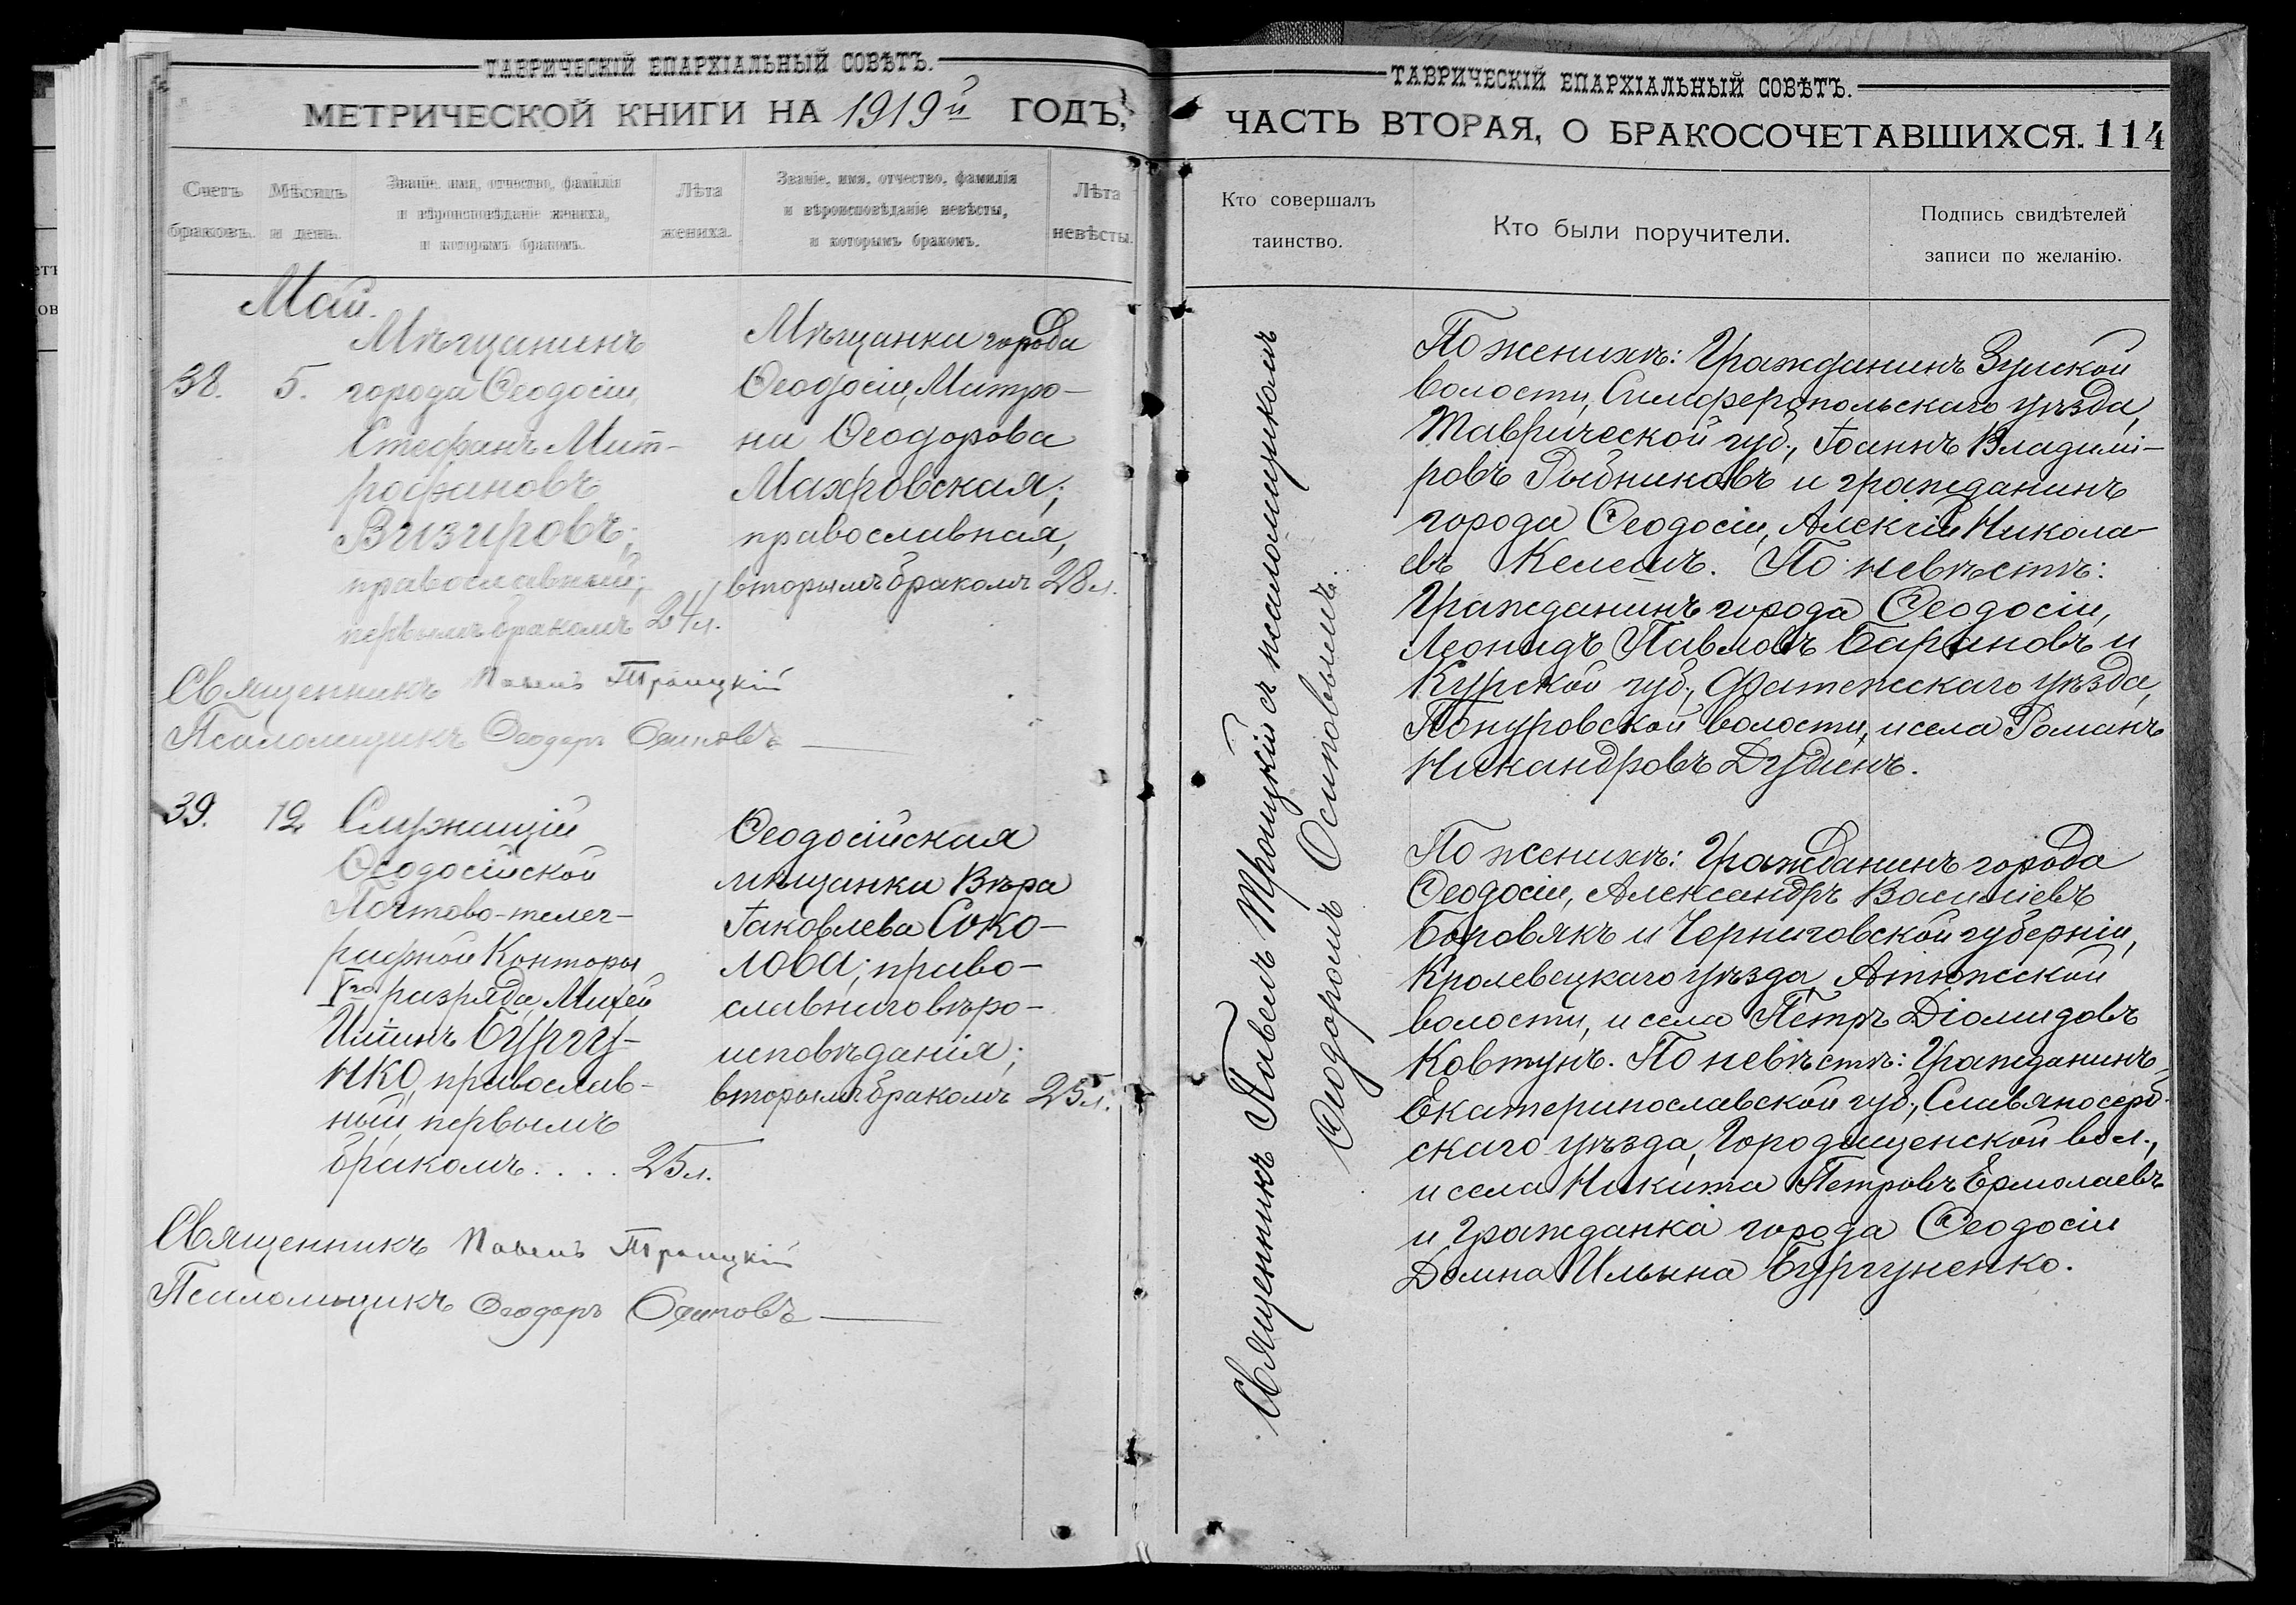 ТАВРИЧЕСКІЙ ЕПАРХІАЛЬНЫЙ СОВѢТЪ.
МЕТРИЧЕСКОЙ КНИГИ НА 1919й ГОДЪ,
Счетъ браковъ.
Мѣсяцъ и день.
Званіе, имя, отчество, фамилія и вѣроисповѣданіе жениха, и которымъ бракомъ.
Лѣта жениха.
Званіе, имя, отчество, фамилія и вѣроисповѣданіе невѣсты, и которымъ бракомъ.
Лѣта невѣсты.
Май.
38. 5.
Мѣщанинъ
города Ѳеодосіи,
Стефанъ Мит-
рофановъ
Визировъ;
православный;
первымъ бракомъ 24 л.
Мѣщанка города
Ѳеодосіи, Матро-
на Ѳеодорова
Махровская;
православная,
вторымъ бракомъ 28 л.
Священникъ Павелъ Троицкій
Псаломщикъ Ѳеодоръ Осиповъ
39. 12
Служащій
Ѳеодосійской
Почтово-телег-
рафной Конторы
Vго разряда, Михей
Ильинъ Бургу-
НКО, православ-
ный, первымъ
бракомъ.... 25 л.
Ѳеодосійская
мѣщанка Вѣра
Іаковлева Соко-
лова; право-
славнаго вѣро-
исповѣданія;
вторымъ бракомъ 25 л.
Священникъ Павелъ Троицкій
Псаломщикъ Ѳеодоръ Осиповъ
ТАВРИЧЕСКІЙ ЕПАРХІАЛЬНЫЙ СОВѢТЪ.
ЧАСТЬ ВТОРАЯ, О БРАКОСОЧЕТАВШИХСЯ. 114
Кто совершалъ таинство.
Кто были поручители.
Подпись свидѣтелей записи по желанію.
Священникъ Павелъ Троицкій съ псаломщикомъ
Ѳеодоромъ Осиповымъ.
По женихѣ: Гражданинъ Зуйской
волости, Симферопольскаго уѣзда,
Таврической губ., Іоаннъ Владимі-
ровъ Рыбниковъ и гражданинъ
города Ѳеодосіи, Алексій Никола-
евъ Келешъ. По невѣстѣ:
Гражданинъ города Ѳеодосіи,
Леонидъ Павловъ Барановъ и
Курской губ., Фатежскаго уѣзда,
волости, и села Романъ
Никандровъ Дудинъ.
По женихѣ: Гражданинъ города
Ѳеодосіи, Александръ Василіевъ
Боровякъ и Черниговской губерніи,
Кролевецкаго уѣзда, Атюжской
волости, и села Петръ Діомидовъ
Ковтунъ. По невѣстѣ: Гражданинъ
Екатеринославской губ., Славяносерб-
скаго уѣзда, Городищенской вол.,
и села Никита Петровъ Ермолаевъ
и Гражданка города Ѳеодосіи
Домна Ильина Бургуненко.